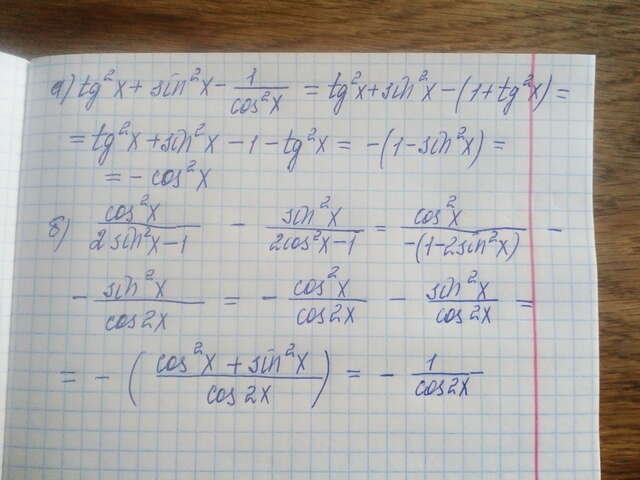 а) tg²x + sin²x - 1/cos²x = tg²x + sin²x - (1 + tg²x) =
= tg²x + sin²x - 1 - tg²x = -(1 - sin²x) =
= - cos²x
б) cos²x/(2sin²x-1) - sin²x/(2cos²x-1) = cos²x/(-(1-2sin²x)) -
- sin²x/cos2x = - cos²x/cos2x - sin²x/cos2x =
= - ((cos²x + sin²x)/cos2x) = - 1/cos2x